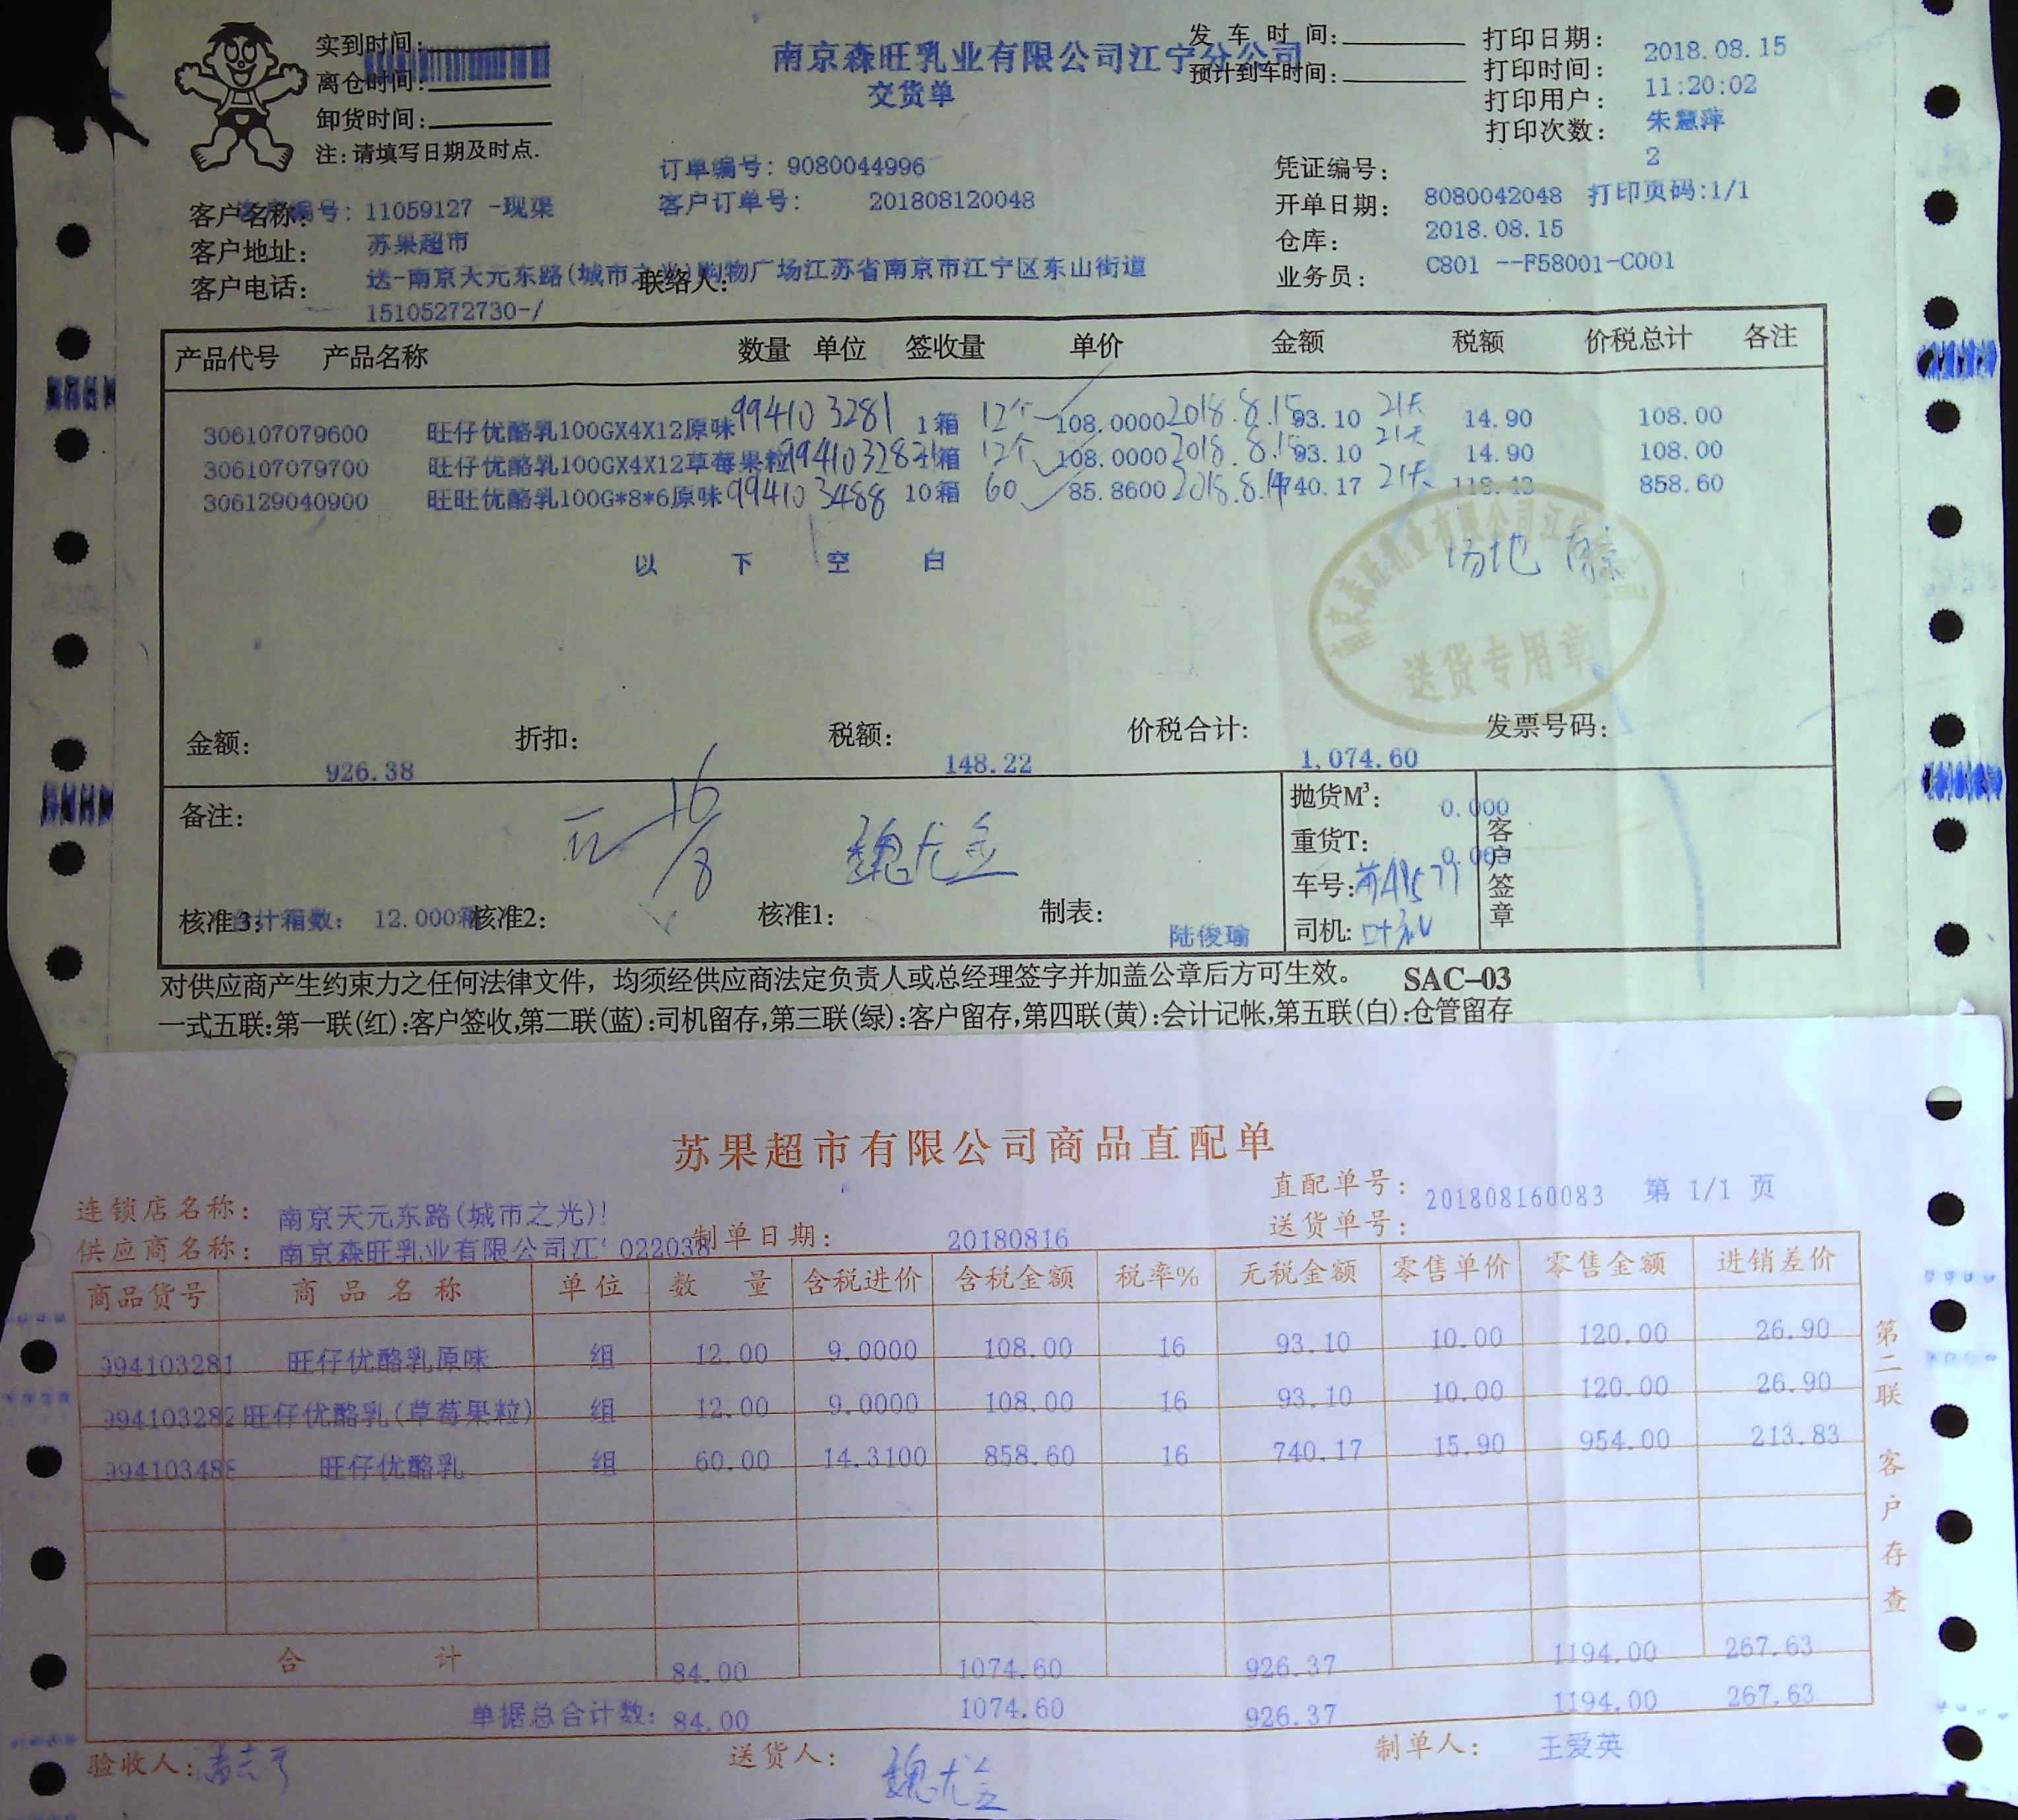 实到时间:
离仓时间:
卸货时间:
注:请填写日期及时点.
南京森旺乳业有限公司江宁分公司
交货单
发车时间:
预计到车时间:
打印日期: 2018.08.15
打印时间: 11:20:02
打印用户: 朱慧萍
打印次数: 2
订单编号: 9080044996
客户订单号: 201808120048
凭证编号: 8080042048 打印页码:1/1
开单日期: 2018.08.15
仓库: C801 --F58001-C001
业务员:
客户名称: 编号: 11059127 -现渠
苏果超市
客户地址: 送-南京天元东路(城市之光)购物广场江苏省南京市江宁区东山街道
客户电话: 15105272730-/
联络人:
产品代号 产品名称 数量 单位 签收量 单价 金额 税额 价税总计 各注
306107079600 旺仔优酪乳100GX4X12原味 994103281 1箱 12个 108.0000 2018.8.15 93.10 21天 14.90 108.00
306107079700 旺仔优酪乳100GX4X12草莓果粒 994103282 1箱 12个 108.0000 2018.8.15 93.10 21天 14.90 108.00
306129040900 旺旺优酪乳100G*8*6原味 994103488 10箱 60 85.8600 2018.8.14 740.17 21天 118.43 858.60
以下空白
场地 南京
送货专用章
金额: 926.38 折扣: 税额: 148.22 价税合计: 1,074.60 发票号码:
备注: 16/8 魏尤金
抛货M³: 0.000
重货T: 0.063
车号:
司机:
客户签章
核准3: 合计箱数: 12.000箱 核准2: 核准1: 制表: 陆俊瑜
对供应商产生约束力之任何法律文件，均须经供应商法定负责人或总经理签字并加盖公章后方可生效。 SAC-03
一式五联:第一联(红):客户签收,第二联(蓝):司机留存,第三联(绿):客户留存,第四联(黄):会计记帐,第五联(白):仓管留存
苏果超市有限公司商品直配单
连锁店名称: 南京天元东路(城市之光)!
直配单号: 201808160083 第 1/1 页
送货单号:
供应商名称: 南京森旺乳业有限公司江' 022038
制单日期: 20180816
商品货号 商品名称 单位 数量 含税进价 含税金额 税率% 无税金额 零售单价 零售金额 进销差价
994103281 旺仔优酪乳原味 组 12.00 9.0000 108.00 16 93.10 10.00 120.00 26.90
994103282 旺仔优酪乳(草莓果粒) 组 12.00 9.0000 108.00 16 93.10 10.00 120.00 26.90
994103488 旺仔优酪乳 组 60.00 14.3100 858.60 16 740.17 15.90 954.00 213.83
合计 84.00 1074.60 926.37 1194.00 267.63
单据总合计数: 84.00 1074.60 926.37 1194.00 267.63
验收人: 送货人: 魏尤金 制单人: 王爱英
第二联 客户存查